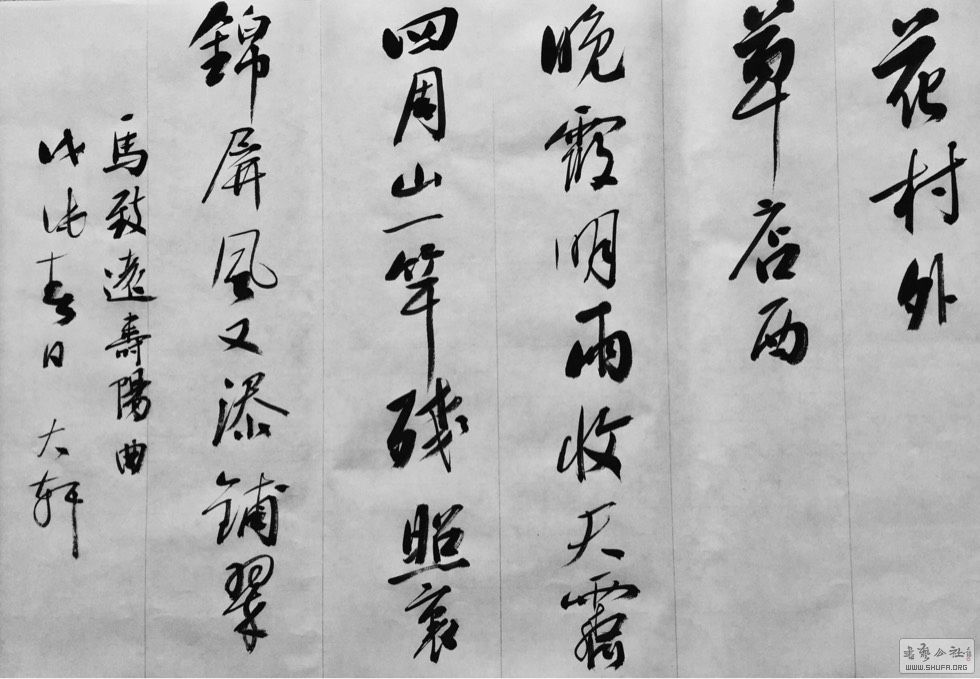 花村外
草店西
晚霞明雨收天霽
四周山一竿殘照裏
錦屏風又添鋪翠
馬致遠壽陽曲
戊戌春日 大軒
書藝公社
WWW.SHUFA.ORG